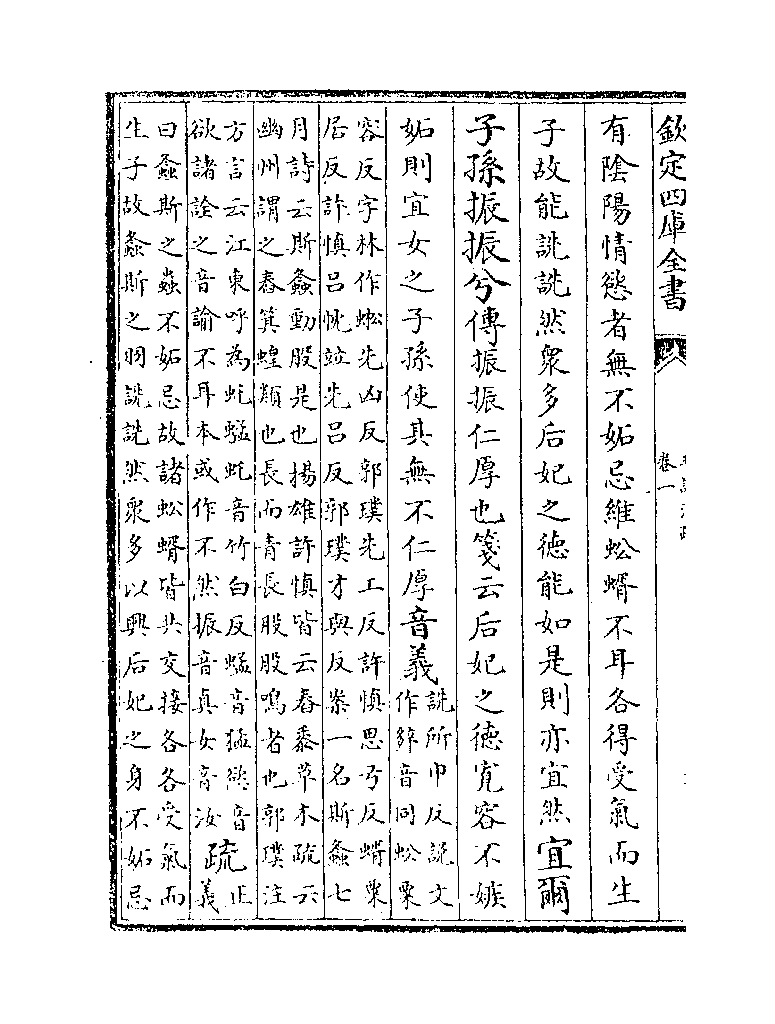 欽定四庫全書
卷一
有陰陽情慾者無不妬忌維蚣蝑不耳各得受氣而生
子故能詵詵然衆多后妃之德能如是則亦宜然宜爾
子孫振振兮傳振振仁厚也箋云后妃之德寛容不嫉
妬則宜女之子孫使其無不仁厚音義
詵所巾反說文
作䛑音同蚣粟
容反字林作蜙先凶反郭璞先工反許慎思弓反蝑粟
居反許慎吕忱竝先吕反郭璞才與反案一名斯螽七
月詩云斯螽動股是也揚雄許慎皆云舂黍草木疏云
幽州謂之舂箕蝗類也長而青長股股鳴者也郭璞注
方言云江東呼為虴蜢虴音竹白反蜢音猛慾音
欲諸詮之音諭不耳本或作不然振音真女音汝
疏
正
義
曰螽斯之蟲不妬忌故諸蚣蝑皆共交接各各受氣而
生子故螽斯之羽詵詵然衆多以興后妃之身不妬忌